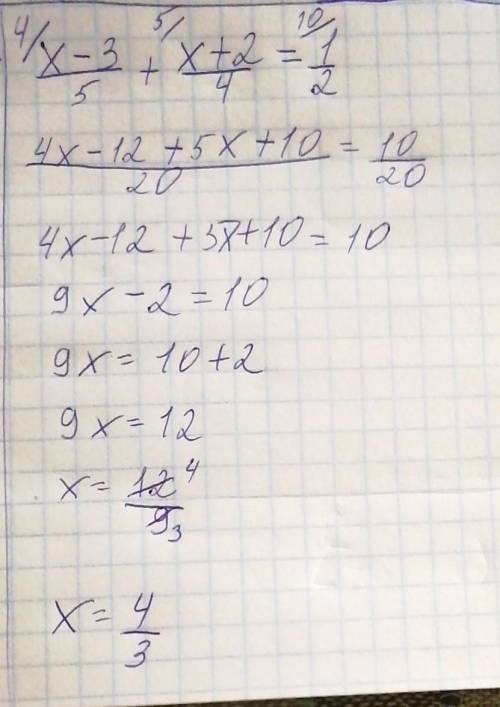 4/ x-3/5 + 5/ x+2/4 = 10/ 1/2
4x-12+5x+10/20 = 10/20
4x-12+5x+10=10
9x-2=10
9x=10+2
9x=12
x=12 4/9 3
x=4/3